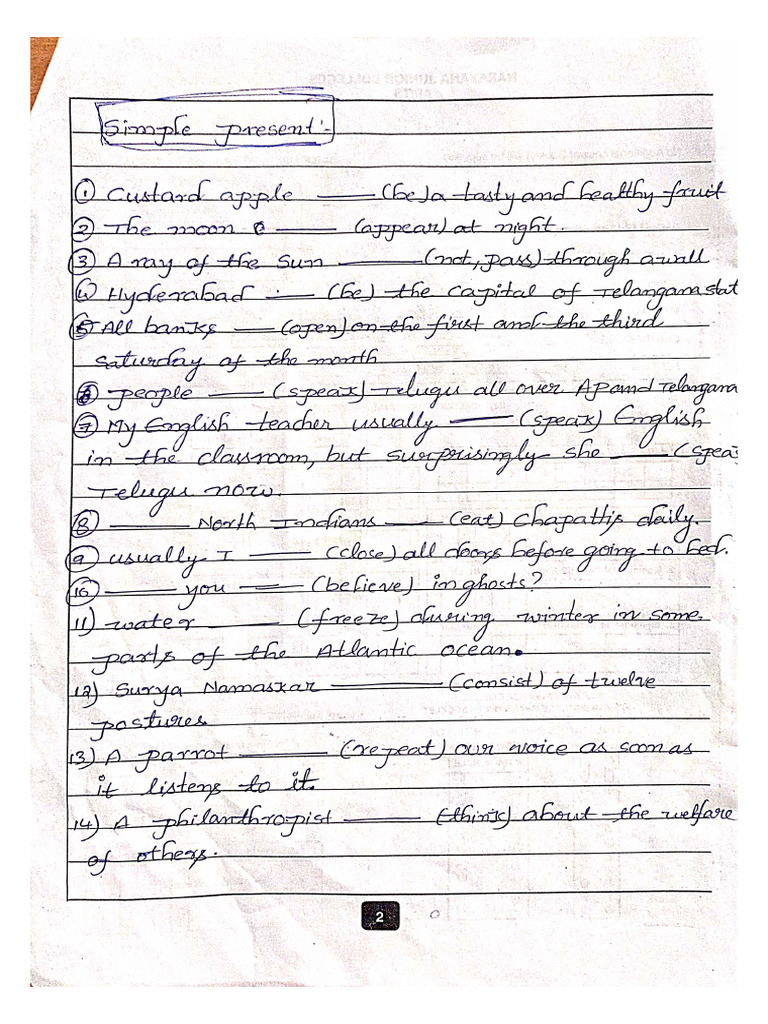 NARAYANA JUNIOR COLLEGE
Simple present:-
① Custard apple ____ (be) a tasty and healthy fruit
② The moon ____ (appear) at night.
③ A ray of the Sun ____ (not, pass) through a wall
④ Hyderabad ____ (be) the capital of Telangana stat
⑤ All banks ____ (open) on the first and the third
saturday of the month
⑥ people ____ (speak) Telugu all over AP and Telangana
⑦ My English teacher usually ____ (speak) English
in the classroom, but surprisingly she ____ (speak
Telugu now.
⑧ ____ North Indians ____ (eat) chapattis daily.
⑨ usually I ____ (close) all doors before going to bed.
⑩ ____ you ____ (believe) in ghosts?
11) water ____ (freeze) during winter in some
parts of the Atlantic ocean.
12) Surya Namaskar ____ (consist) of twelve
postures.
13) A parrot ____ (repeat) our voice as soon as
it listens to it.
14) A philanthropist ____ (think) about the welfare
of others.
2